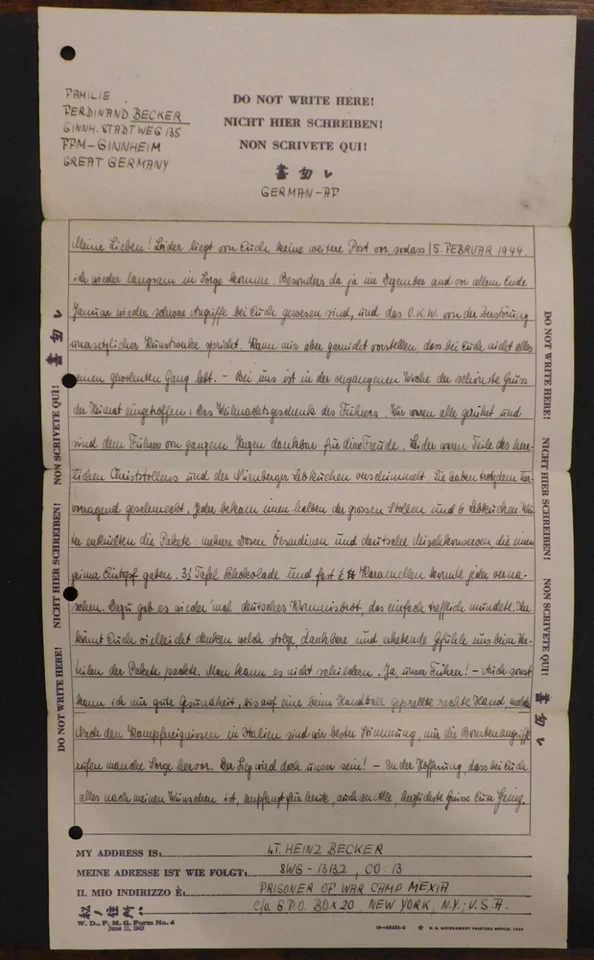 FAMILIE
FERDINAND BECKER
GINNH. STADTWEG 135
FFM-GINNHEIM
GREAT GERMANY
DO NOT WRITE HERE!
NICHT HIER SCHREIBEN!
NON SCRIVETE QUI!
書 勿 レ
GERMAN-AF
Meine Lieben! Leider liegt von Euch keine weitere Post vor, sodass 15. FEBRUAR 1944.
ich wieder langsam in Sorge komme. Besonders da ja im Dezember und vor allem Ende
Januar wieder schwere Angriffe bei Euch gewesen sind, und das O.K.W. von der Zerstörung
unersetzlicher Kunstwerke spricht. Kann mir aber garnicht vorstellen, dass bei Euch nicht alles
seinen gewohnten Gang lebt. - Bei uns ist in der vergangenen Woche der schönste Gruss
der Heimat eingetroffen: Das Weihnachtsgeschenk des Führers. Wir waren alle gerührt und
sind dem Führer von ganzem Herzen dankbar für diese Freude. Leider waren Teile des herr-
lichen Christstollens und der Nürnberger Lebkuchen verschimmelt. Sie haben trotzdem her-
vorragend geschmeckt. Jeder bekam einen halben der grossen Stollen und 6 Lebkuchen. Wei-
ter enthielten die Pakete: mehrere Dosen Ölsardinen und deutsche Mischkonserven die einen
prima Eintopf geben. 3½ Tafel Schokolade und fast ½ ℔ Karamellen konnte jeder verna-
schen. Dazu gab es wieder 'mal deutsches Kommissbrot, das einfach trefflich mundete. Ihr
könnt Euch vielleicht denken welch stolze, dankbare und erhebende Gefühle uns beim Ver-
teilen der Pakete packte. Man kann es nicht schildern. Ja, unser Führer! - Auch sonst
kann ich nur gute Gesundheit, bis auf eine beim Handball geprellte rechte Hand, melden.
Nach den Kampfereignissen in Italien sind wir bester Stimmung, nur die Bombenangriffe
rufen manche Sorge hervor. Der Sieg wird doch unser sein! - In der Hoffnung, dass bei Euch
alles nach meinen Wünschen ist, empfangt für heute, auch an Alle, herzlichste Grüsse Euer Heinz.
DO NOT WRITE HERE! NICHT HIER SCHREIBEN! NON SCRIVETE QUI! 書 勿 レ
DO NOT WRITE HERE! NICHT HIER SCHREIBEN! NON SCRIVETE QUI! 書 勿 レ
MY ADDRESS IS: LT. HEINZ BECKER
MEINE ADRESSE IST WIE FOLGT: 8WG-1332, CO: 13
IL MIO INDIRIZZO È: PRISONER OF WAR CAMP MEXIA
私ノ住所: c/o G.P.O. BOX 20, NEW YORK, N.Y.; U.S.A.
W. D., P. M. G. Form No. 4
June 11, 1943
U. S. GOVERNMENT PRINTING OFFICE